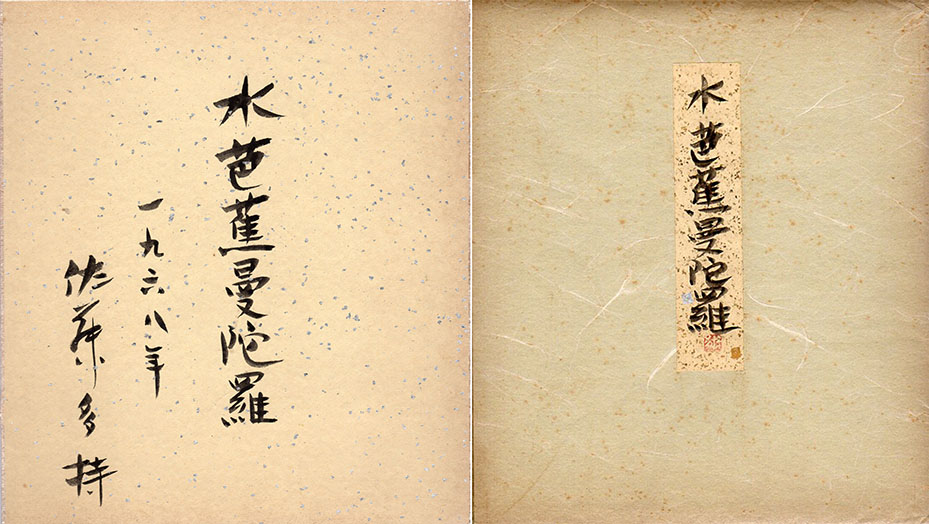 水芭蕉曼陀羅
一九六八年
佐藤多持
水芭蕉曼陀羅